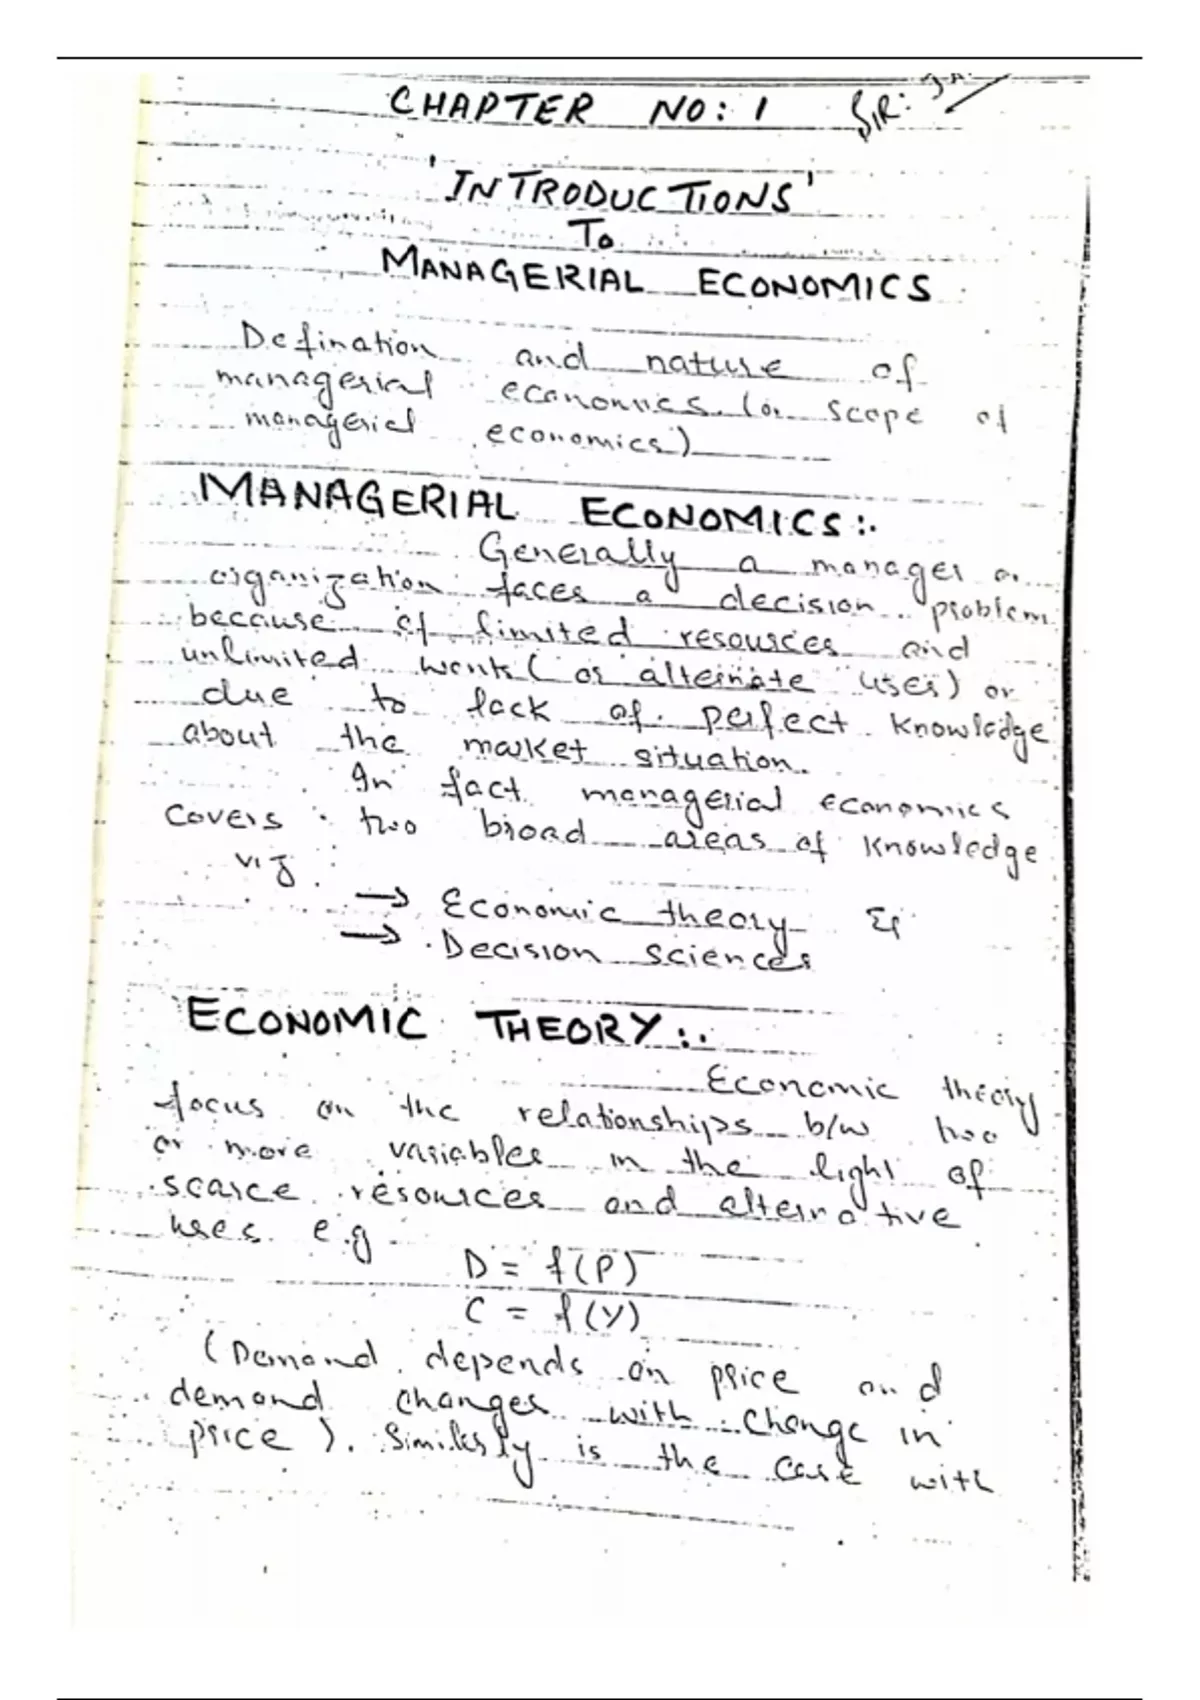 CHAPTER NO: 1 SIR: J.A.
'INTRODUCTIONS'
To
MANAGERIAL ECONOMICS
Defination and nature of
managerial economics. (or scope of
managerial economics)
MANAGERIAL ECONOMICS:.
Generally a manager or
organization faces a decision problem
because of limited resources and
unlimited wants (or alternate uses) or
due to lack of perfect knowledge
about the market situation.
In fact managerial economics
covers two broad areas of knowledge
viz.
→ Economic theory &
→ Decision sciences
ECONOMIC THEORY:.
Economic theory
focus on the relationships b/w two
or more variables in the light of
scarce resources and alternative
uses. e.g
D = f(P)
C = f(Y)
(Demand depends on price and
demand changes with change in
price). Similarly is the case with